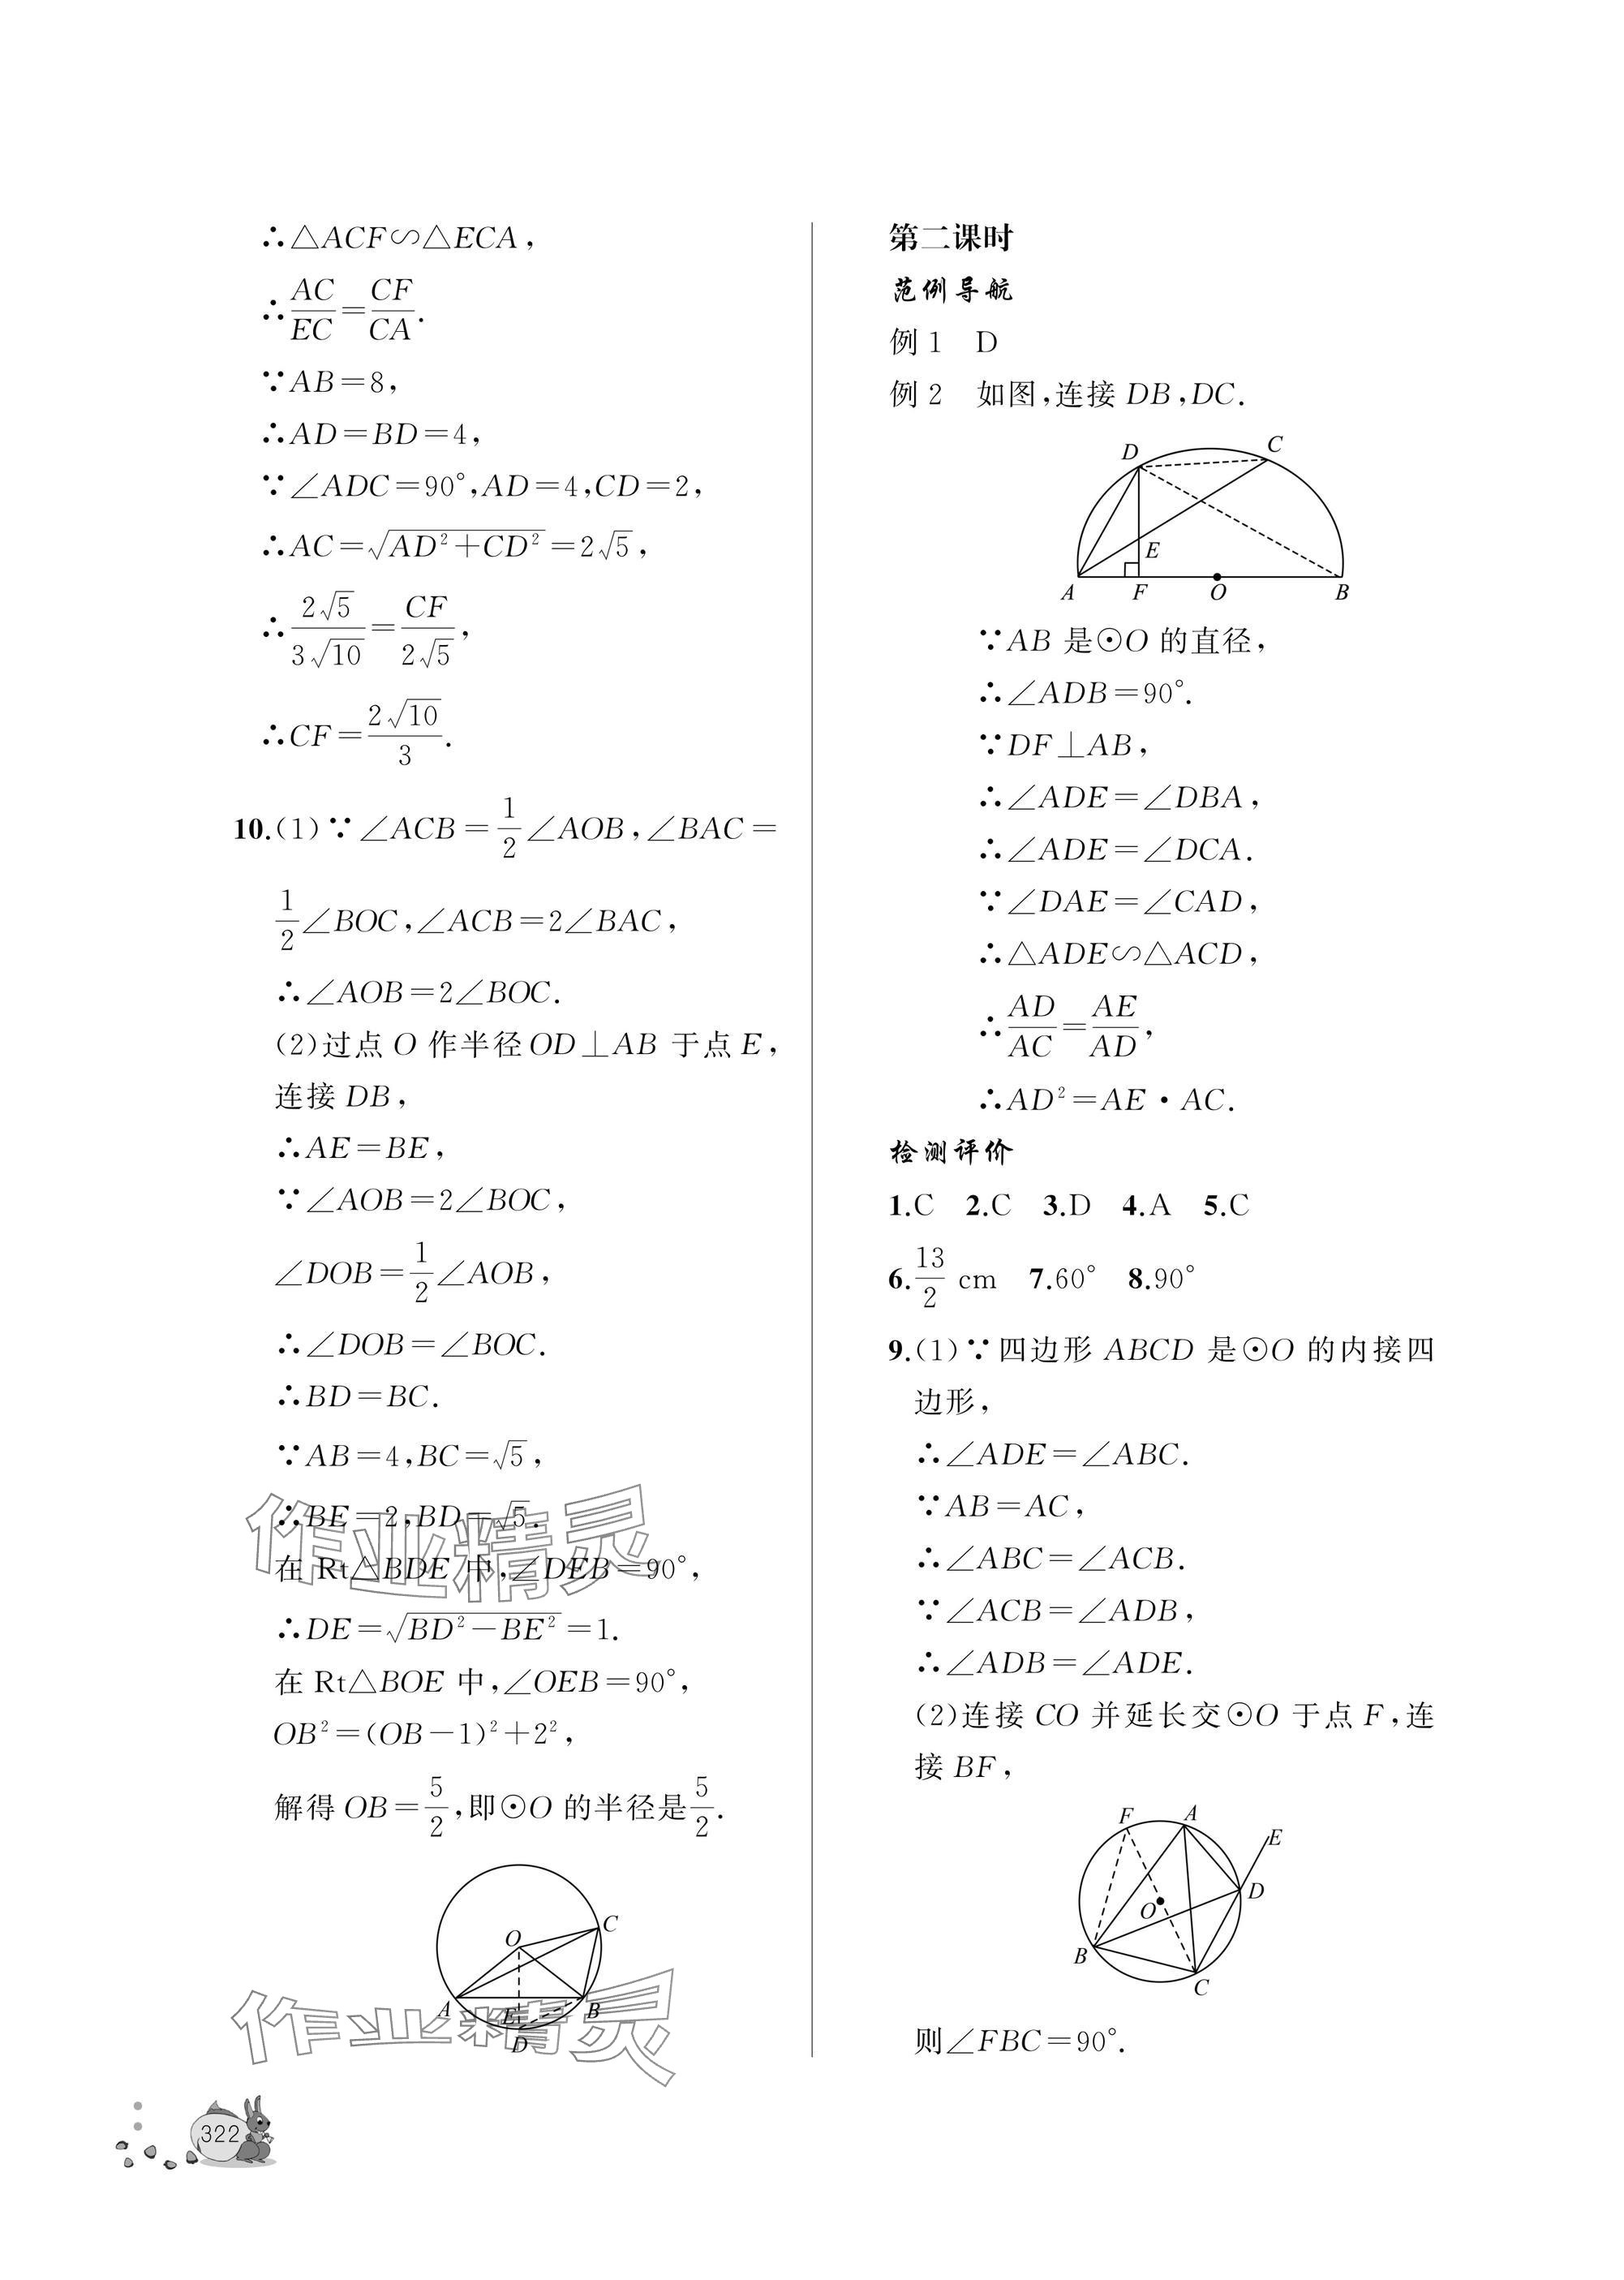 ∴△ACF∽△ECA,
∴AC/EC=CF/CA.
∵AB=8,
∴AD=BD=4,
∵∠ADC=90°,AD=4,CD=2,
∴AC=√(AD²+CD²)=2√5,
∴2√5/3√10=CF/2√5,
∴CF=2√10/3.
10.(1)∵∠ACB=1/2∠AOB,∠BAC=
1/2∠BOC,∠ACB=2∠BAC,
∴∠AOB=2∠BOC.
(2)过点O作半径OD⊥AB于点E,
连接DB,
∴AE=BE,
∵∠AOB=2∠BOC,
∠DOB=1/2∠AOB,
∴∠DOB=∠BOC.
∴BD=BC.
∵AB=4,BC=√5,
∴BE=2,BD=√5.
在Rt△BDE中,∠DEB=90°,
∴DE=√(BD²-BE²)=1.
在Rt△BOE中,∠OEB=90°,
OB²=(OB-1)²+2²,
解得OB=5/2,即⊙O的半径是5/2.
O
C
A
E
B
D
作业精灵
作业精灵
322
第二课时
范例导航
例1 D
例2 如图,连接DB,DC.
D
C
E
A
F
O
B
∵AB是⊙O的直径,
∴∠ADB=90°.
∵DF⊥AB,
∴∠ADE=∠DBA,
∴∠ADE=∠DCA.
∵∠DAE=∠CAD,
∴△ADE∽△ACD,
∴AD/AC=AE/AD,
∴AD²=AE·AC.
检测评价
1.C 2.C 3.D 4.A 5.C
6.13/2 cm 7.60° 8.90°
9.(1)∵四边形ABCD是⊙O的内接四
边形,
∴∠ADE=∠ABC.
∵AB=AC,
∴∠ABC=∠ACB.
∵∠ACB=∠ADB,
∴∠ADB=∠ADE.
(2)连接CO并延长交⊙O于点F,连
接BF,
F
A
E
D
O
B
C
则∠FBC=90°.